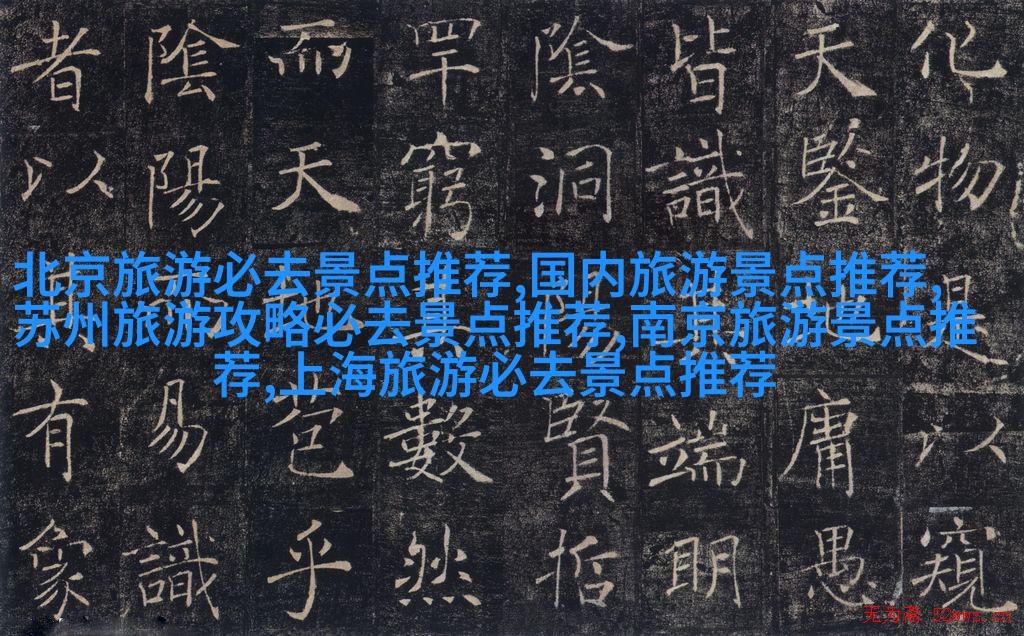 化物是以窺
天鑒庸愚
皆識端明
陰洞陽賢哲
罕窮其數然
而天地苞乎
陰陽易識
者以有象
北京旅游必去景点推荐,国内旅游景点推荐,
苏州旅游攻略必去景点推荐,南京旅游景点推
荐,上海旅游必去景点推荐
无为斋 52wwz.cn